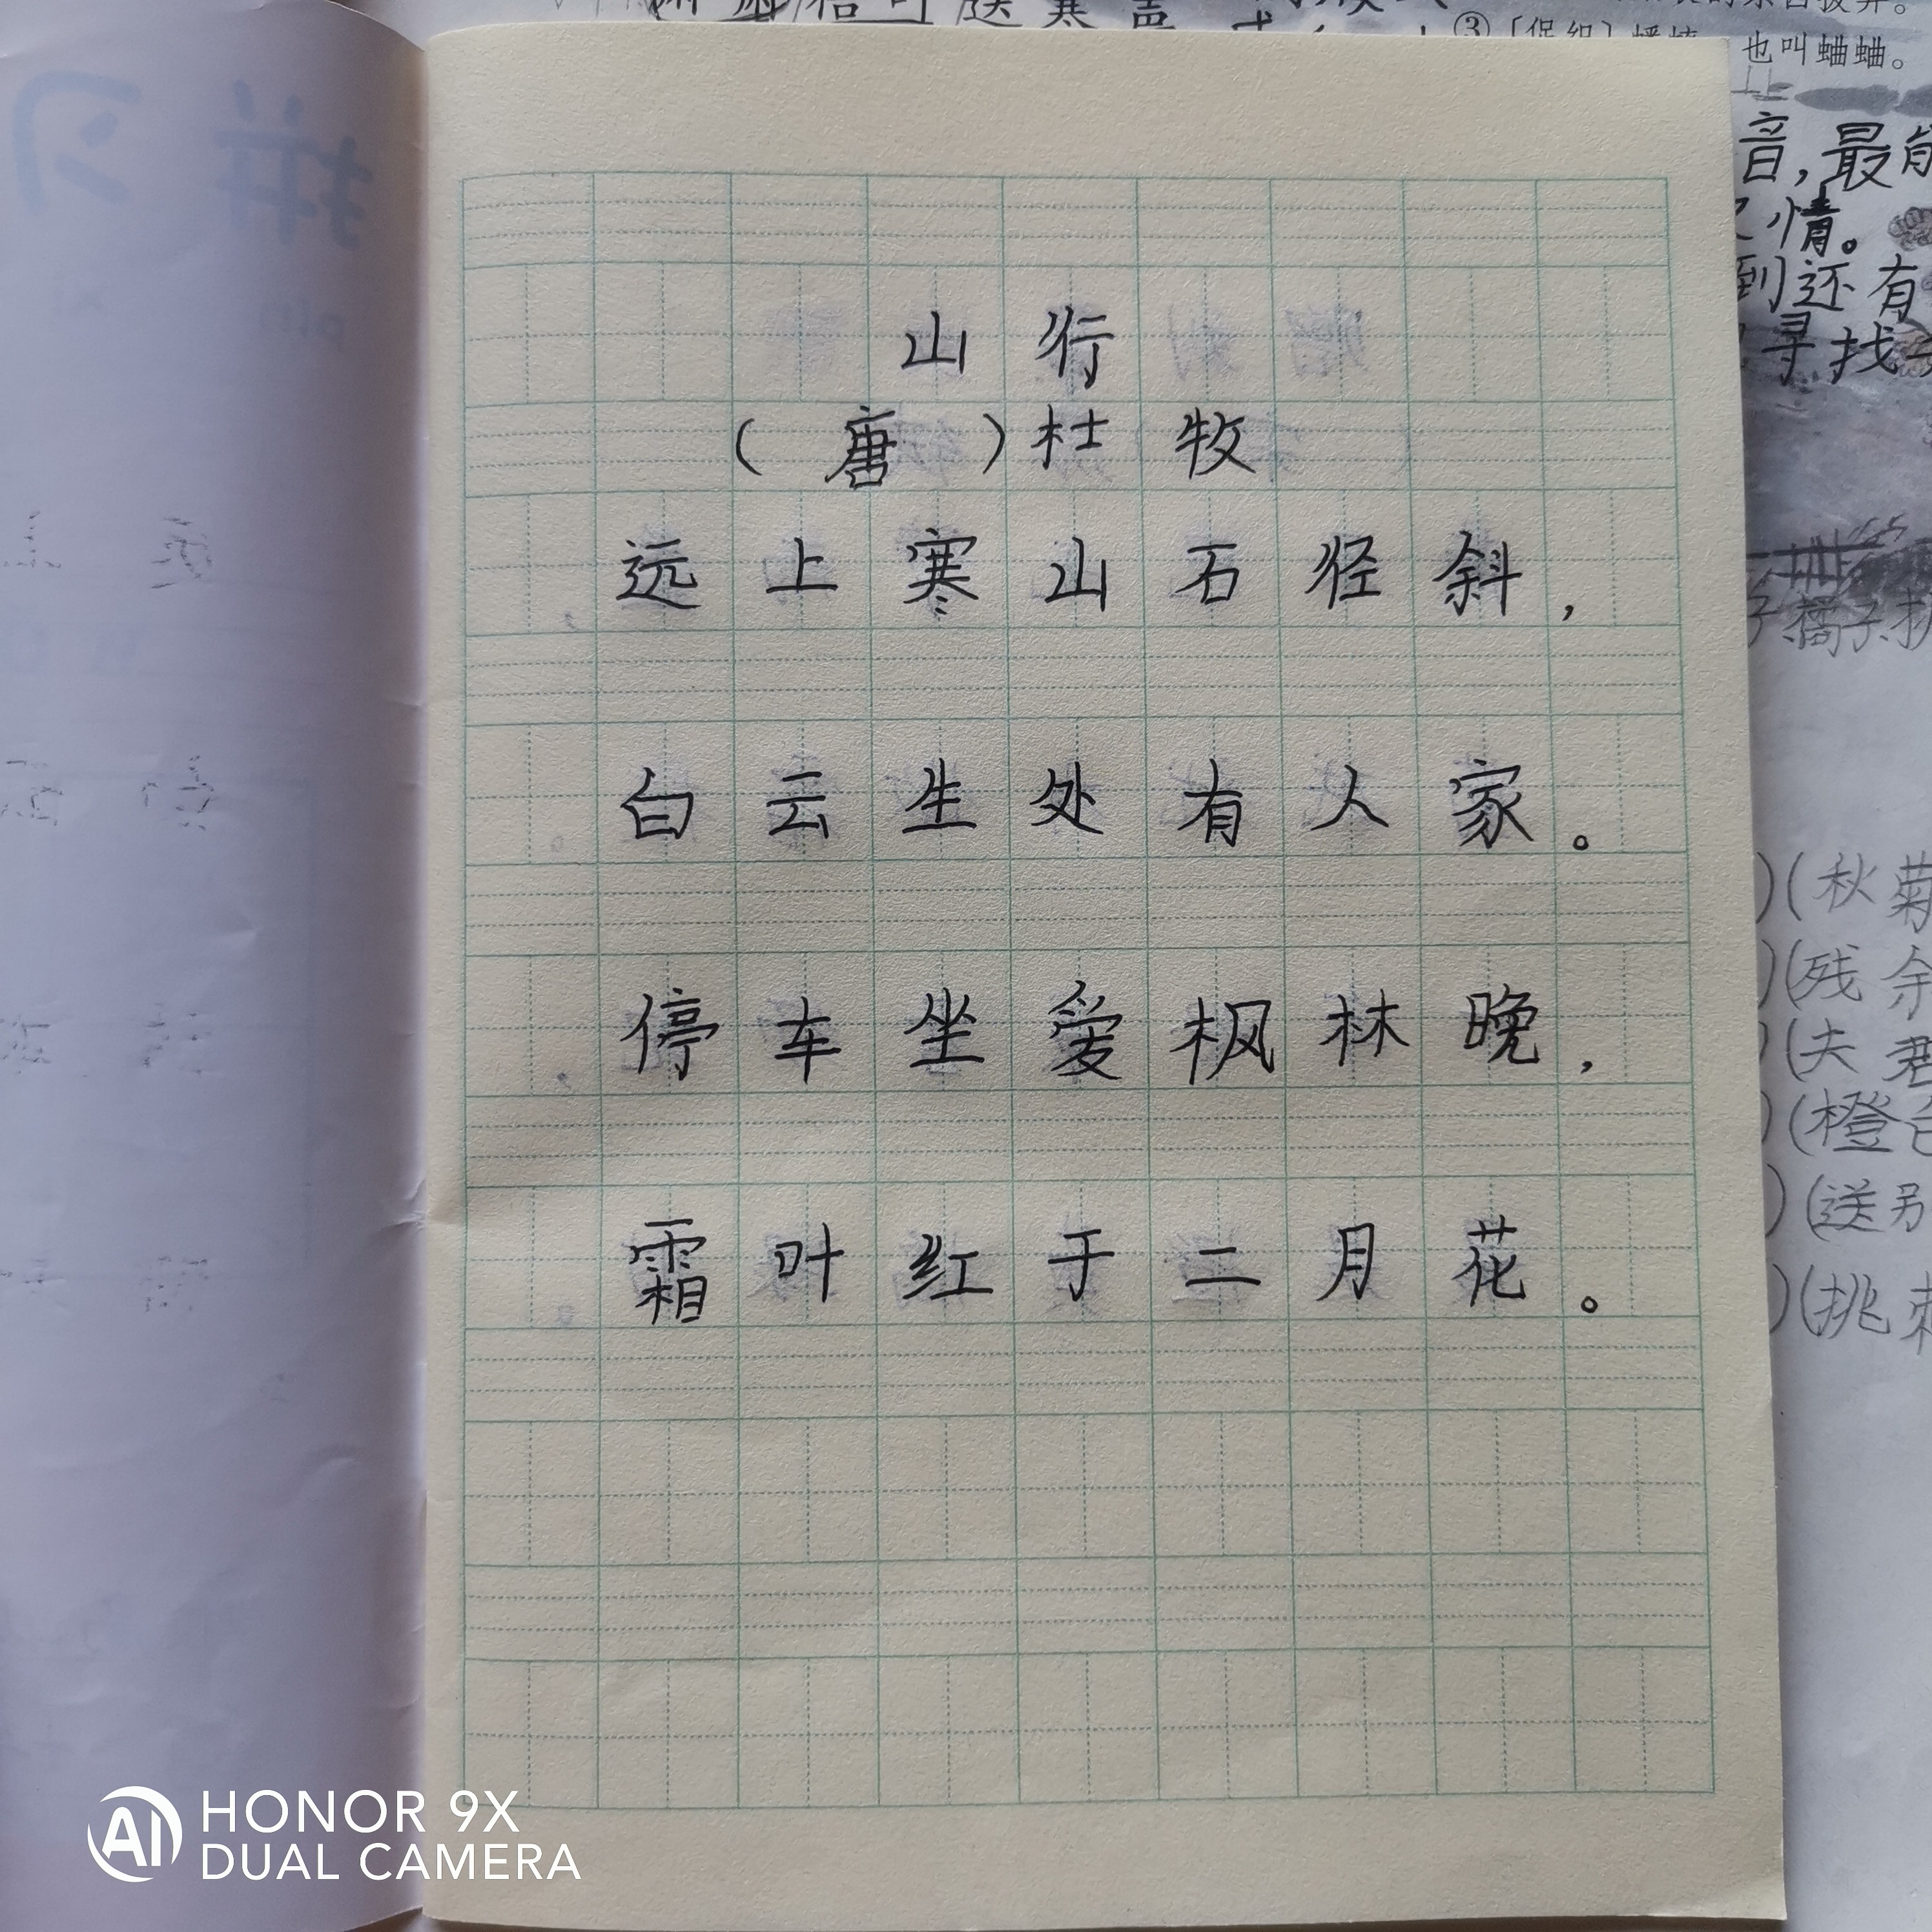 ③〔促织〕蟋蟀，也叫蛐蛐。
音,最能
情。
到还有
寻找
山行
(唐)杜牧
远上寒山石径斜，
白云生处有人家。
停车坐爱枫林晚，
霜叶红于二月花。
子、橘子、
)(秋菊
)(残余
)(夫君
)(橙
)(送别
)(挑
拼习
pin
HONOR 9X
DUAL CAMERA